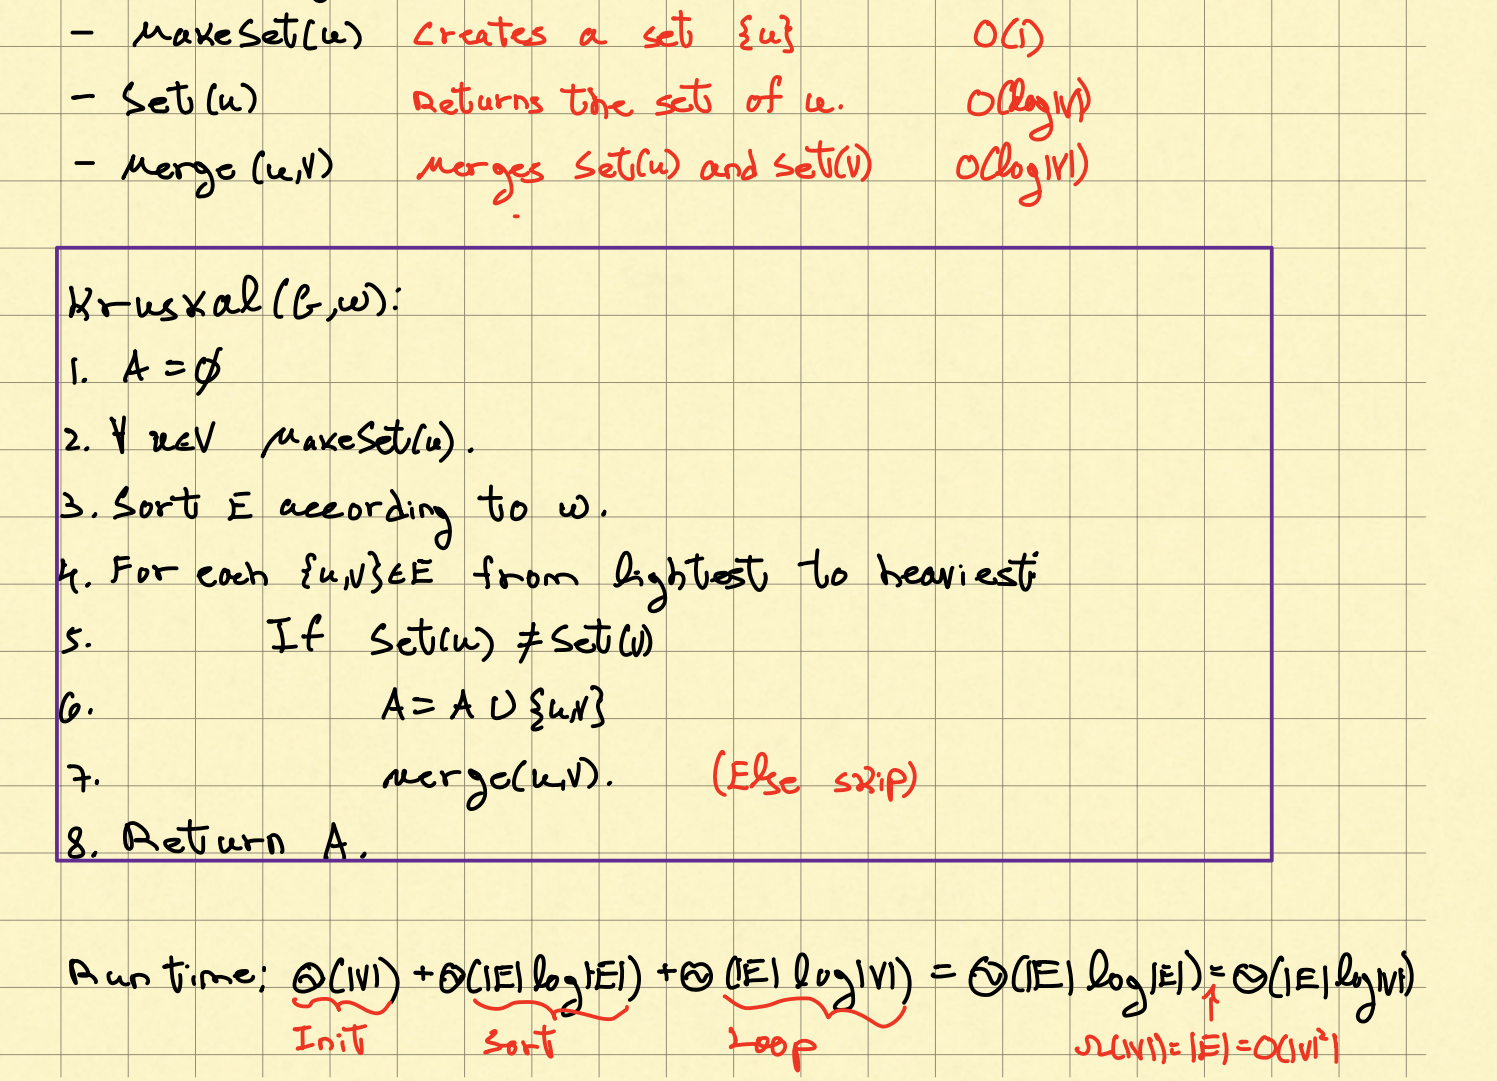 - MakeSet(u) Creates a set {u} O(1)
- Set(u) Returns the set of u. O(log|V|)
- Merge(u,v) Merges Set(u) and Set(v) O(log|V|)
Kruskal(G,w):
1. A = ∅
2. ∀ u∈V MakeSet(u).
3. Sort E according to w.
4. For each {u,v}∈E from lightest to heaviest:
5. If Set(u) ≠ Set(v)
6. A = A ∪ {u,v}
7. Merge(u,v). (Else skip)
8. Return A.
Run time: Θ(|V|) + Θ(|E| log|E|) + Θ(|E| log|V|) = Θ(|E| log|E|) = Θ(|E| log|V|)
Init Sort Loop Ω(|V|) = |E| = O(|V|²)